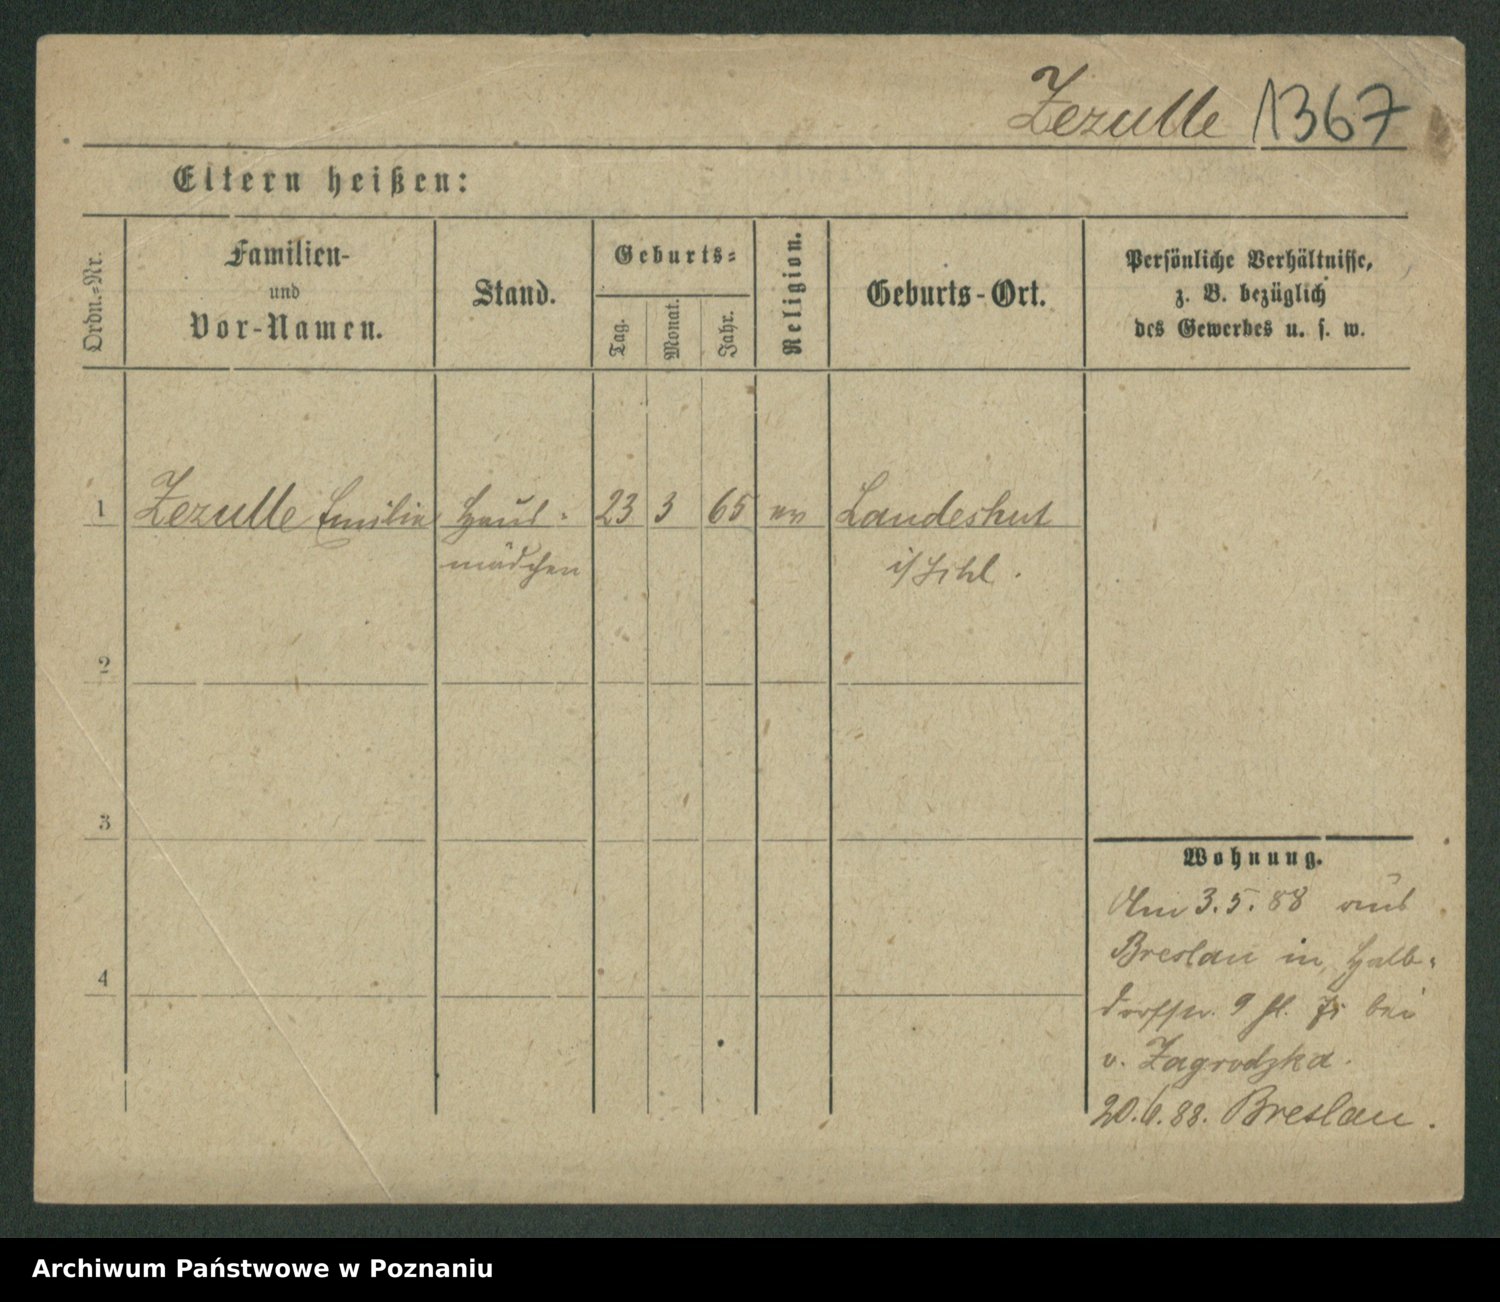 Zezulle 1367
Eltern heißen:
Ordn.-Nr.
Familien-
und
Vor-Namen.
Stand.
Geburts-
Tag.
Monat.
Jahr.
Religion.
Geburts-Ort.
Persönliche Verhältnisse,
z. B. bezüglich
des Gewerbes u. s. w.
1 Zezulle Emilie Haus- 23 3 65 ev Landeshut
mädchen i/Schl.
2
3
4
Wohnung.
Am 3.5.88 aus
Breslau in Halb-
dorfstr. 9 bei
v. Zagrodzka.
20.6.88. Breslau.
Archiwum Państwowe w Poznaniu